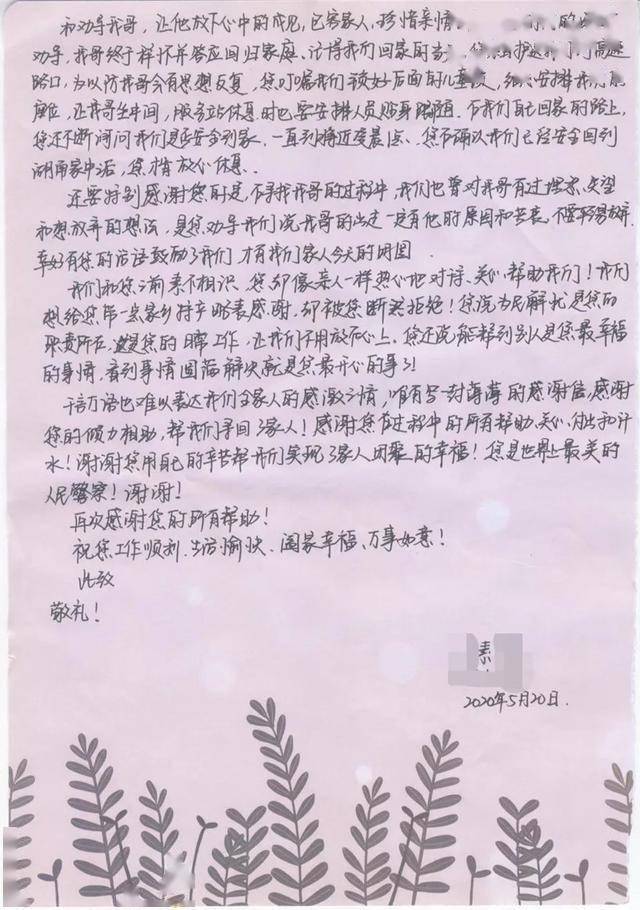 和劝导我哥，让他放下心中的成见，包容家人，珍惜亲情 的
劝导，我哥终于释怀并答应回归家庭。记得我们回家的 您 护送 高速
路口，为以防我哥会有思想反复，您叮嘱我们锁好后面的儿童锁，细心安排我们
座位，让我哥坐中间，服务站休息时也要安排人员贴身跟随。在我们自己回家的路上，
您还不断询问我们是否安全到家，一直到将近凌晨 点，您在确认我们已经安全回到
湖南家中后，您才放心休息。
还要特别感谢您的是，在寻找我哥的过程中，我们也曾对我哥有过埋怨、失望
和想放弃的想法，是您劝导我们说我哥的出走一定有他的原因和苦衷，不要轻易放弃，
幸好有您的话语鼓励了我们，才有我们家人今天的团圆。
我们和您之前素不相识，您却像亲人一样热心地对待、关心、帮助我们！我们
想给您带一点家乡特产略表感谢，却被您断然拒绝！您说为民解忧是您的
职责所在，这是您的日常工作，让我们不用放在心上。您还说能帮到别人是您最幸福
的事情，看到事情圆满解决就是您最开心的事了！
千言万语也难以表达我们全家人的感激之情，唯有写一封薄薄的感谢信，感谢
您的倾力相助，帮我们寻回了家人！感谢您在过程中的所有帮助、关心、付出和汗
水！谢谢您用自己的辛苦帮我们实现了家人团聚的幸福！您是世界上最美的
人民警察！谢谢！
再次感谢您的所有帮助！
祝您工作顺利、生活愉快、阖家幸福、万事如意！
此致
敬礼！
2020年5月20日.